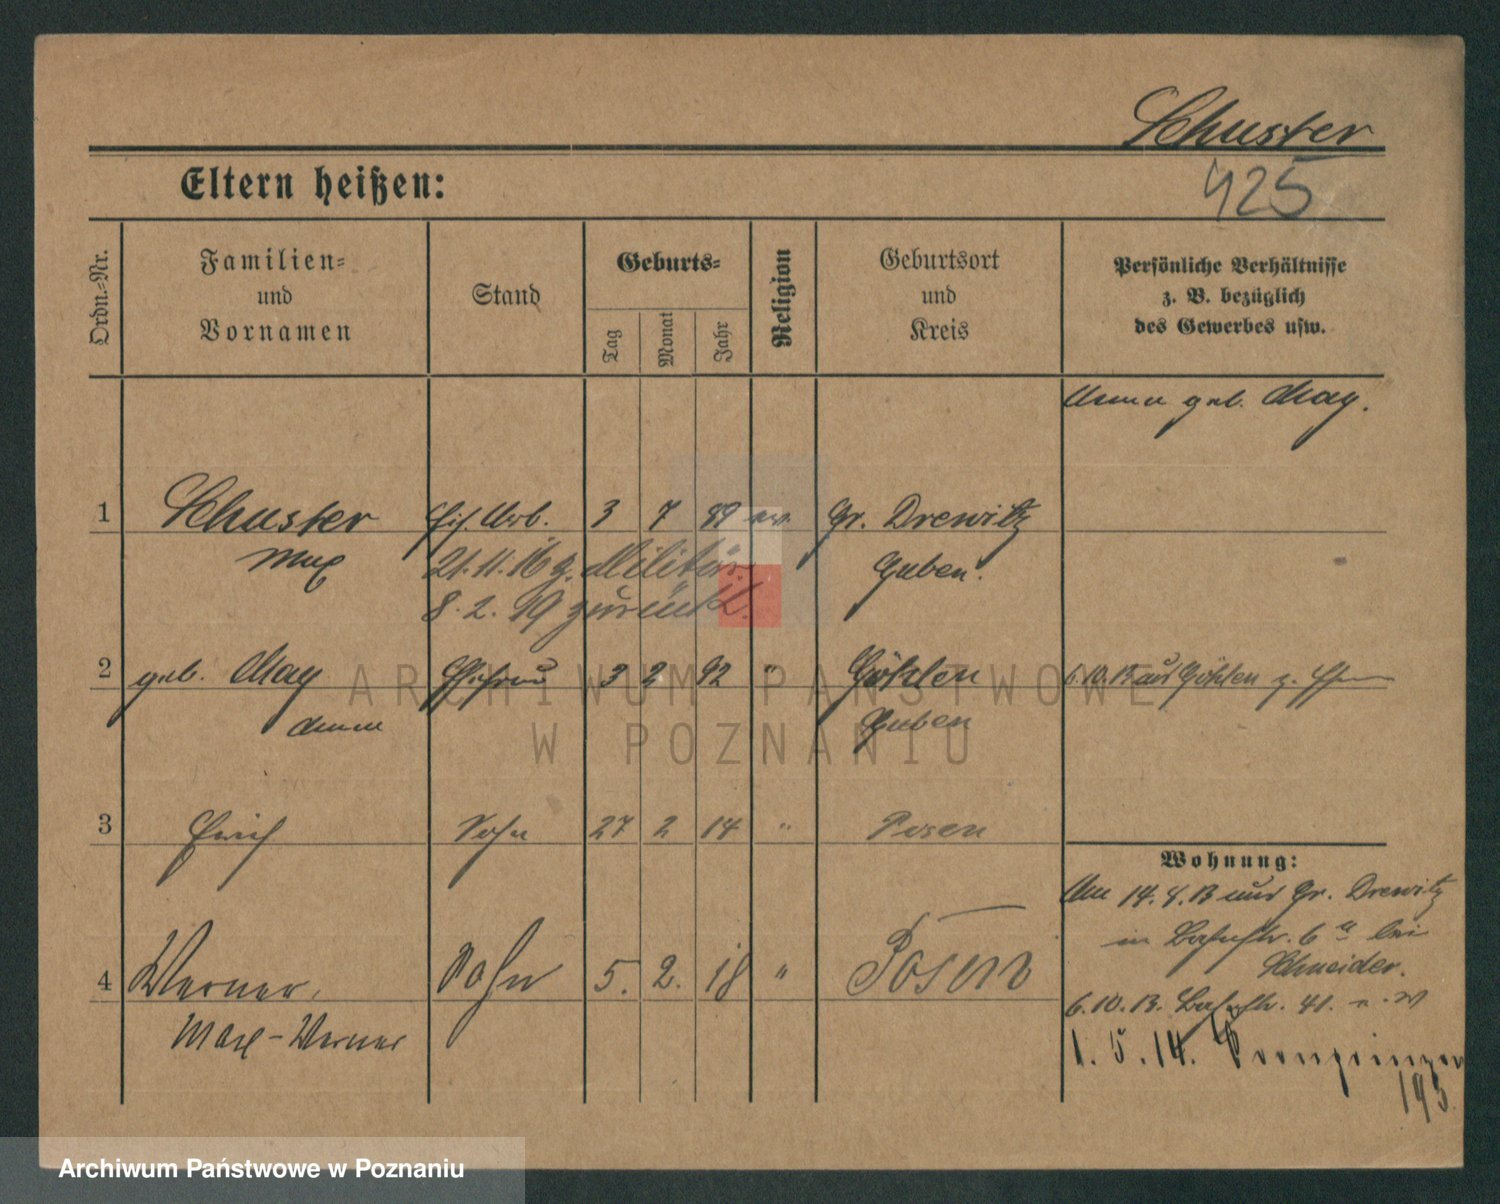 Schuster
425
Eltern heißen:
Ordn.-Nr.
Familien-
und
Vornamen
Stand
Geburts-
Tag
Monat
Jahr
Religion
Geburtsort
und
Kreis
Persönliche Verhältnisse
z. B. bezüglich
des Gewerbes usw.
Anna geb. May.
1 Schuster Arb. 3 7 89 ev. Gr. Drewitz
Max 21.11.16 z. Militär Guben.
8.2.19 zurück.
2 geb. May Ehefrau 3 2 92 " Göhlen 6.10.13 aus Göhlen z.
Anna Guben
3 Erich Sohn 27 2 14 " Posen
Wohnung:
Am 14.8.13 aus Gr. Drewitz
in Bahnstr. 6 a bei
Schneider.
4 Werner, Sohn 5. 2. 18 " Posen
6.10.13. Bahnstr. 41.
Max-Werner
1.5.14. Kronprinzen
193.
ARCHIWUM PAŃSTWOWE
W POZNANIU
Archiwum Państwowe w Poznaniu